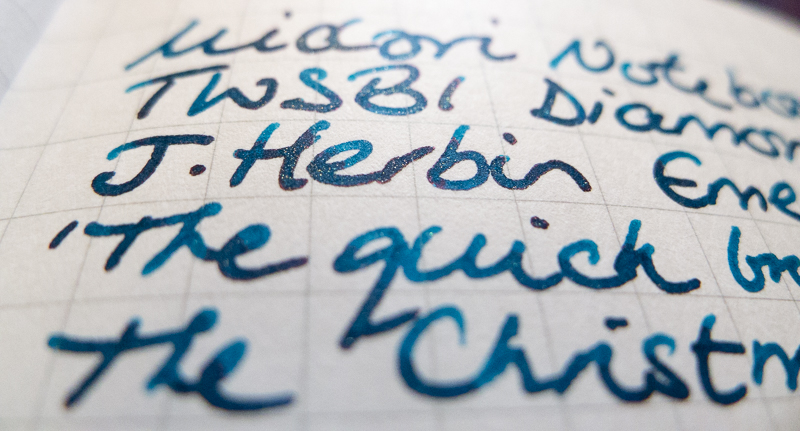 Midori Notebo
TWSBI Diamon
J. Herbin Eme
'The quick br
The Christm